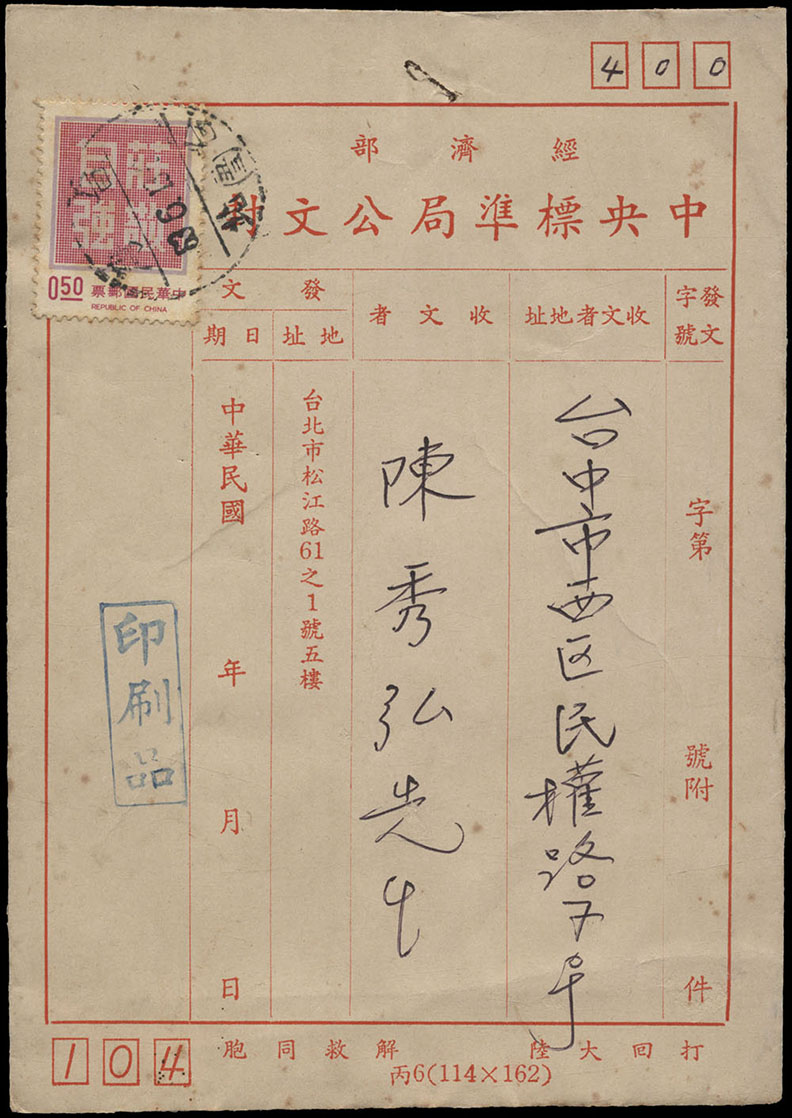 400
經濟部
中央標準局公文封
莊敬
自強
0.50
中華民國郵票
REPUBLIC OF CHINA
發文字號
字第 號附 件
收文者地址
台中市西区民權路
收文者
陳秀弘先生
發文
地址
台北市松江路61之1號五樓
日期
中華民國 年 月 日
印刷品
打回大陸 解救同胞
丙6(114×162)
104